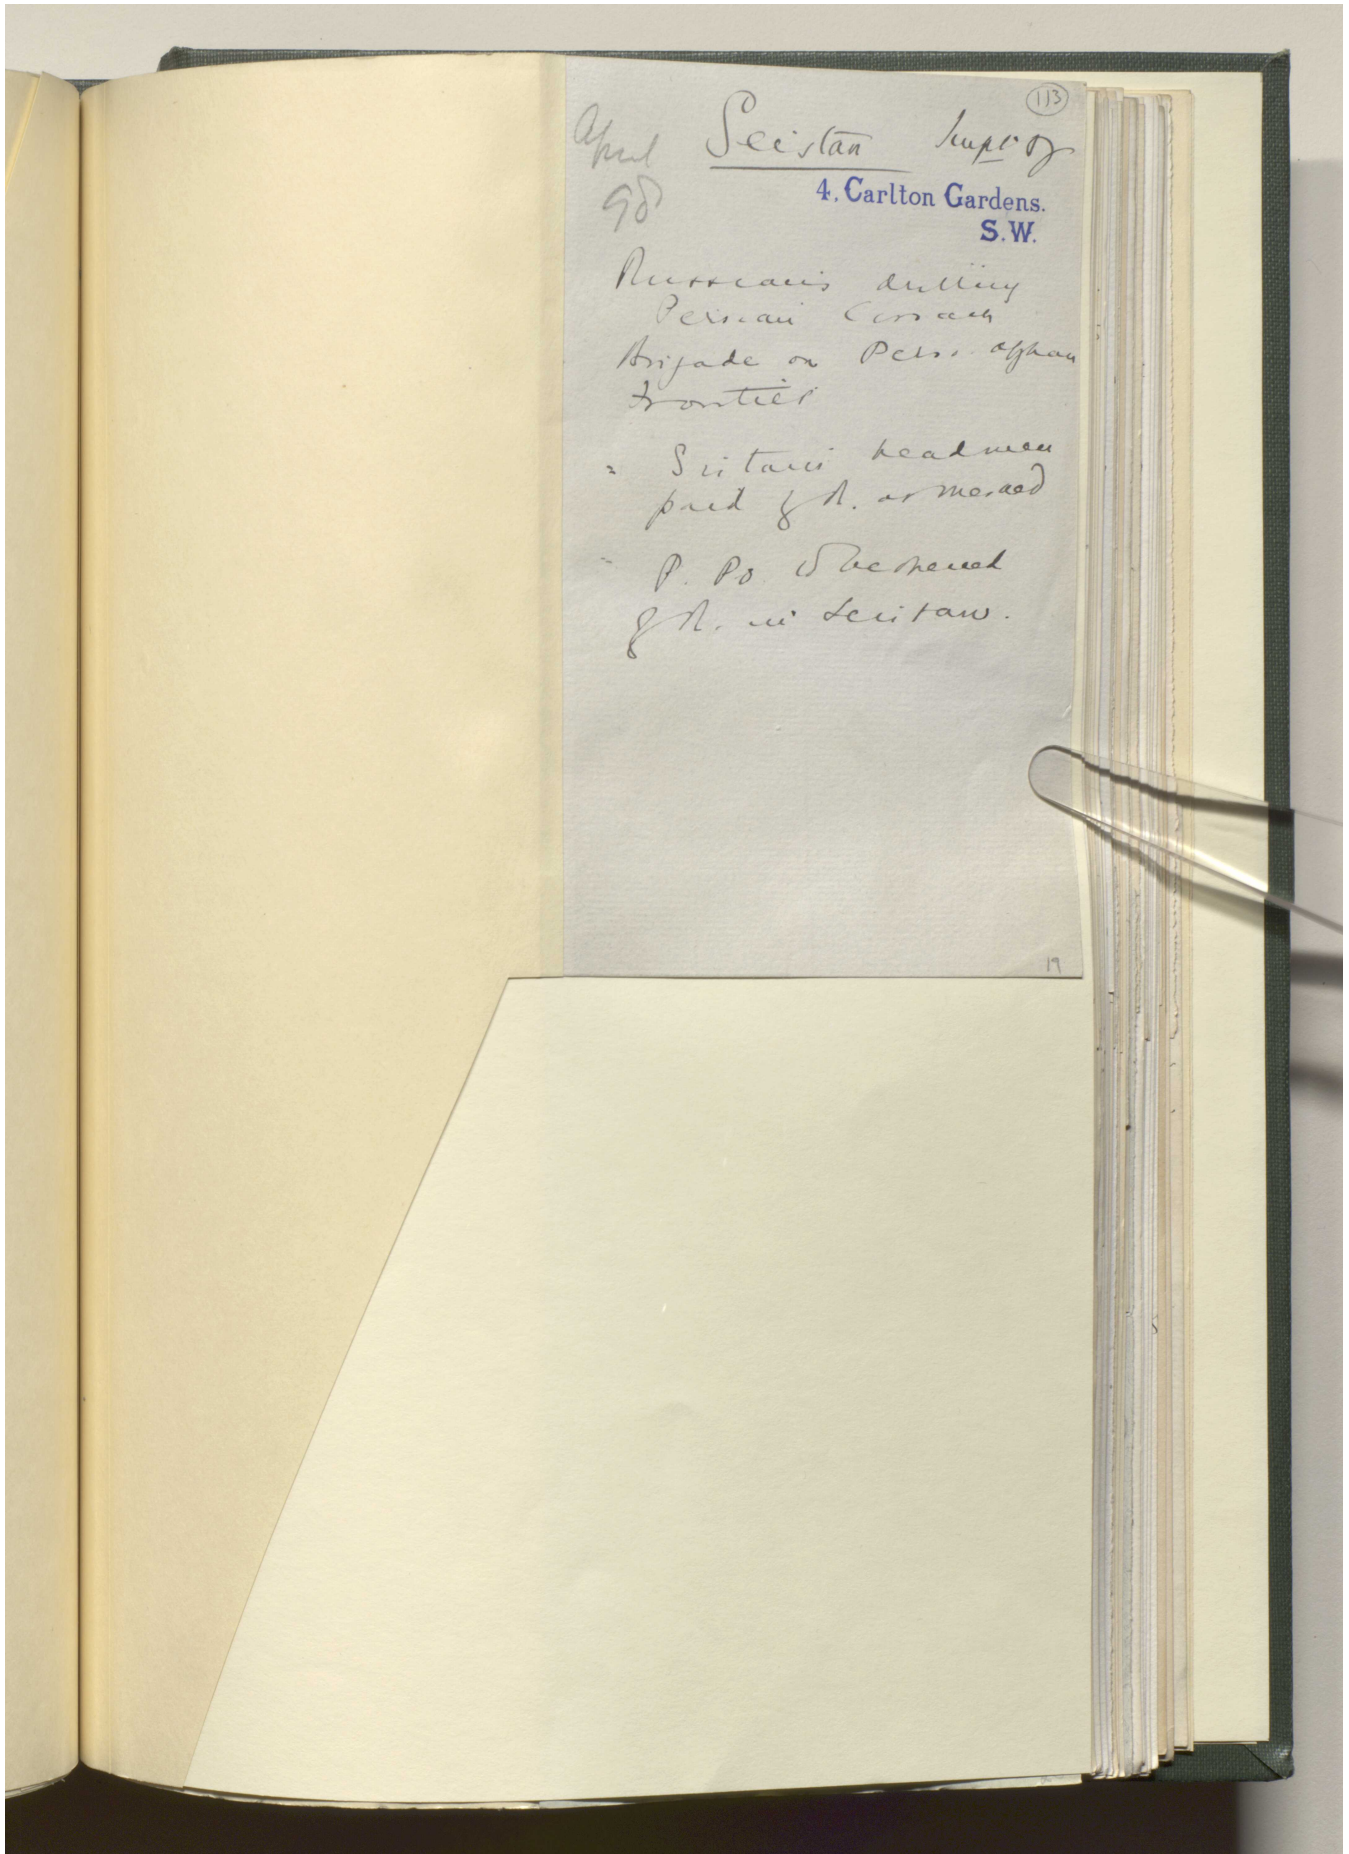 113
April
98
Seistan Impce of
4, Carlton Gardens.
S.W.
Russians drilling
Persian Cossack
Brigade on Pers. Afghan
frontier
Seistani headmen
paid by R. at Meshed
P. Po. to be opened
by R. in Seistan.
19